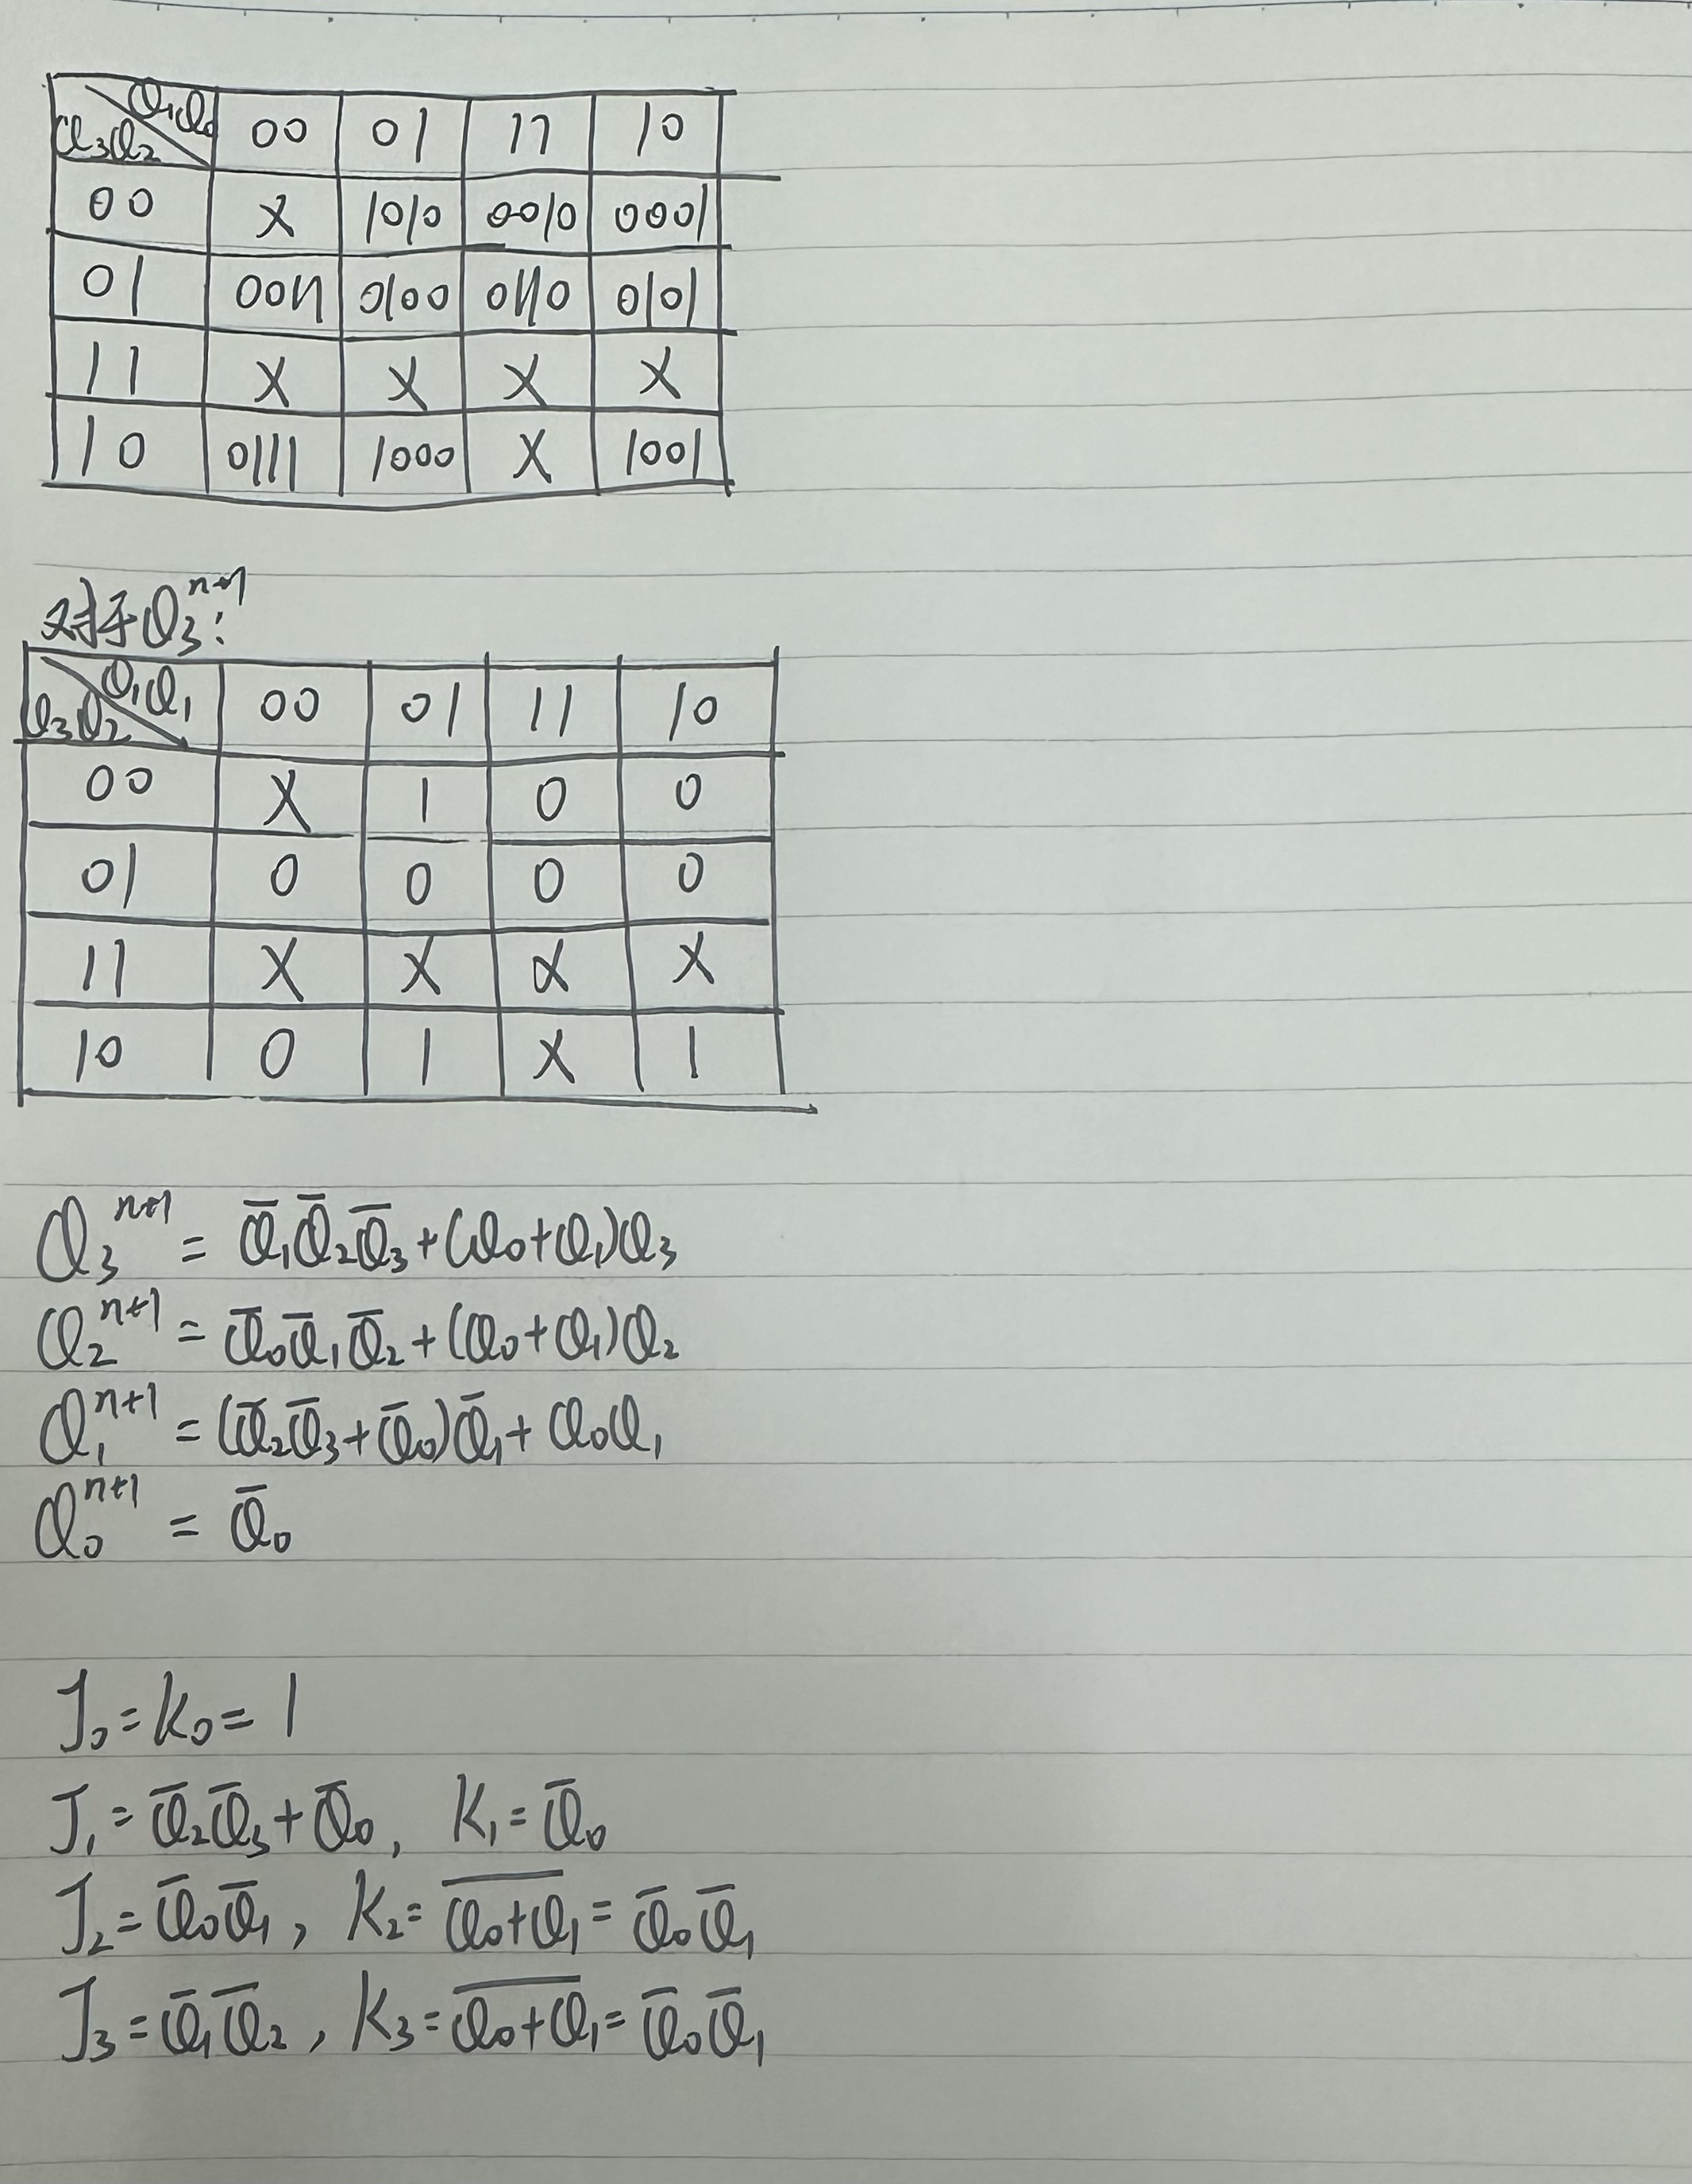 Q₁Q₀ 00 01 11 10
Q₃Q₂
00 X 1010 0010 0001
01 0011 0100 0110 0101
11 X X X X
10 0111 1000 X 1001
对于Q₃ⁿ⁺¹:
Q₁Q₁ 00 01 11 10
Q₃Q₂
00 X 1 0 0
01 0 0 0 0
11 X X X X
10 0 1 X 1
Q₃ⁿ⁺¹ = Q̅₁Q̅₂Q̅₃+(Q₀+Q₁)Q₃
Q₂ⁿ⁺¹ = Q̅₀Q̅₁Q̅₂+(Q₀+Q₁)Q₂
Q₁ⁿ⁺¹ = (Q̅₂Q̅₃+Q̅₀)Q̅₁+Q₀Q₁
Q₀ⁿ⁺¹ = Q̅₀
J₀=K₀=1
J₁=Q̅₂Q̅₃+Q̅₀, K₁=Q̅₀
J₂=Q̅₀Q̅₁, K₂=\overline{Q₀+Q₁}=Q̅₀Q̅₁
J₃=Q̅₁Q̅₂, K₃=\overline{Q₀+Q₁}=Q̅₀Q̅₁